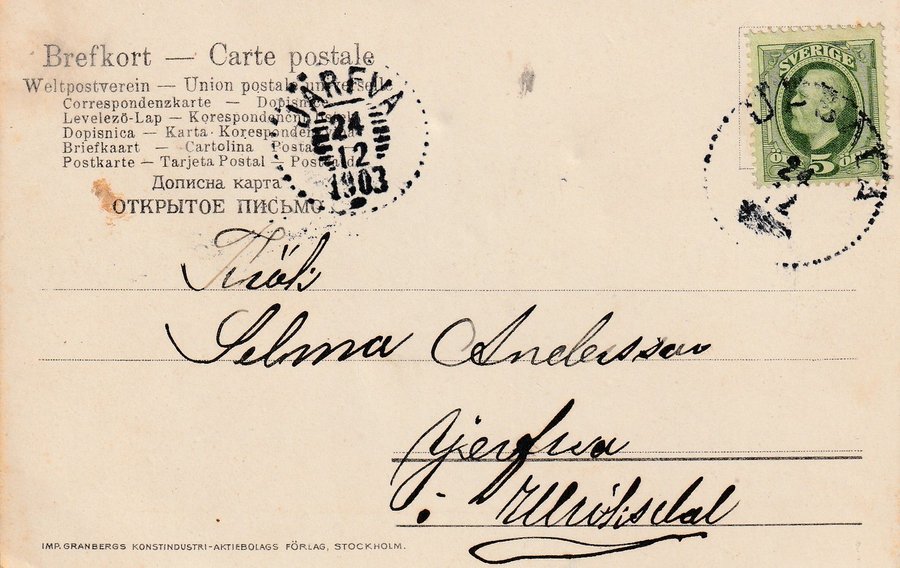 Brefkort — Carte postale
Weltpostverein — Union postale universelle
Correspondenzkarte — Dopisnice
Levelező-Lap — Korespondencní
Dopisnica — Karta Korespondenc
Briefkaart — Cartolina Posta
Postkarte — Tarjeta Postal —
Дописна карта
ОТКРЫТОЕ ПИСЬМО
JÄRFVA
24
12
1903
SVERIGE
Ö 5 Ö
24
12
Frök
Selma Andersson
Jerfva
i Ulriksdal
IMP. GRANBERGS KONSTINDUSTRI-AKTIEBOLAGS FÖRLAG, STOCKHOLM.